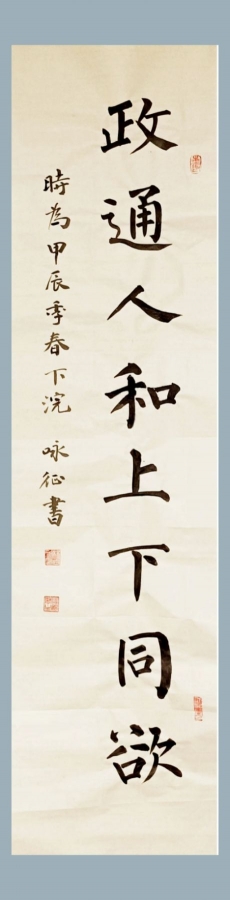 政通人和上下同欲
時為甲辰季春下浣 咏征書